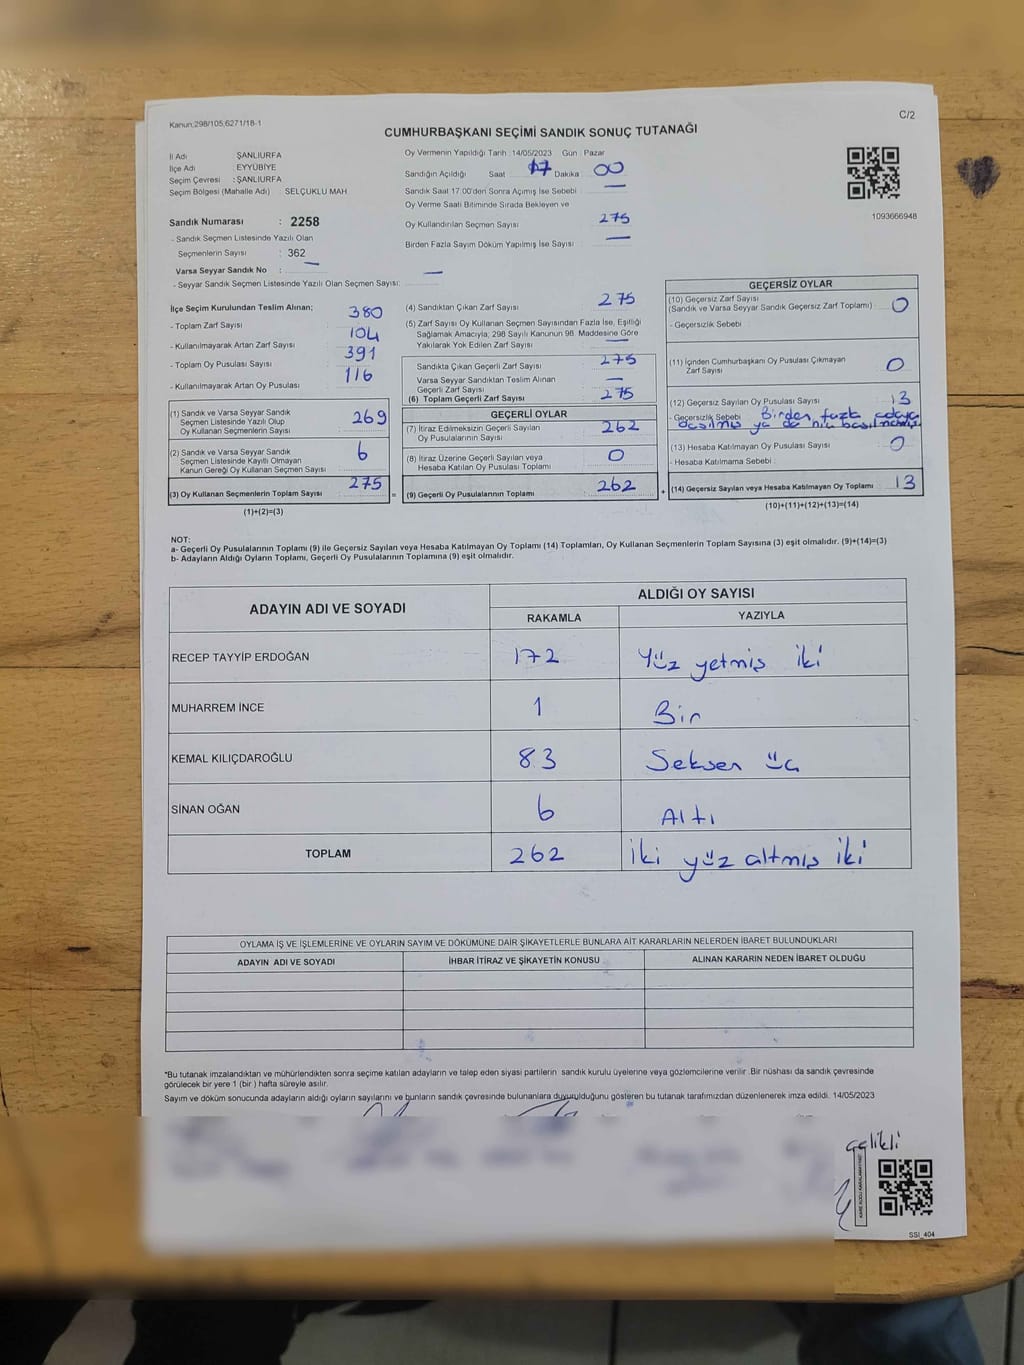 Kanun,298/105,6271/18-1
C/2
CUMHURBAŞKANI SEÇİMİ SANDIK SONUÇ TUTANAĞI
İl Adı : ŞANLIURFA
İlçe Adı : EYYÜBİYE
Seçim Çevresi : ŞANLIURFA
Seçim Bölgesi (Mahalle Adı) SELÇUKLU MAH
Sandık Numarası : 2258
- Sandık Seçmen Listesinde Yazılı Olan
Seçmenlerin Sayısı : 362
Varsa Seyyar Sandık No : —
- Seyyar Sandık Seçmen Listesinde Yazılı Olan Seçmen Sayısı: —
Oy Vermenin Yapıldığı Tarih :14/05/2023 Gün : Pazar
Sandığın Açıldığı Saat 17 Dakika 00
Sandık Saat 17:00'den Sonra Açımış İse Sebebi —
Oy Verme Saati Bitiminde Sırada Bekleyen ve
Oy Kullandırılan Seçmen Sayısı 275
Birden Fazla Sayım Döküm Yapılmış İse Sayısı —
1093666948
İlçe Seçim Kurulundan Teslim Alınan;
- Toplam Zarf Sayısı 380
- Kullanılmayarak Artan Zarf Sayısı 104
- Toplam Oy Pusulası Sayısı 391
- Kullanılmayarak Artan Oy Pusulası 116
(1) Sandık ve Varsa Seyyar Sandık
Seçmen Listesinde Yazılı Olup
Oy Kullanan Seçmenlerin Sayısı 269
(2) Sandık ve Varsa Seyyar Sandık
Seçmen Listesinde Kayıtlı Olmayan
Kanun Gereği Oy Kullanan Seçmen Sayısı 6
(3) Oy Kullanan Seçmenlerin Toplam Sayısı 275 =
(1)+(2)=(3)
(4) Sandıktan Çıkan Zarf Sayısı 275
(5) Zarf Sayısı Oy Kullanan Seçmen Sayısından Fazla İse, Eşitliği
Sağlamak Amacıyla; 298 Sayılı Kanunun 98. Maddesine Göre
Yakılarak Yok Edilen Zarf Sayısı —
Sandıkta Çıkan Geçerli Zarf Sayısı 275
Varsa Seyyar Sandıktan Teslim Alınan
Geçerli Zarf Sayısı —
(6) Toplam Geçerli Zarf Sayısı 275
GEÇERLİ OYLAR
(7) İtiraz Edilmeksizin Geçerli Sayılan
Oy Pusulalarının Sayısı 262
(8) İtiraz Üzerine Geçerli Sayılan veya
Hesaba Katılan Oy Pusulası Toplamı 0
(9) Geçerli Oy Pusulalarının Toplamı 262 +
GEÇERSİZ OYLAR
(10) Geçersiz Zarf Sayısı
(Sandık ve Varsa Seyyar Sandık Geçersiz Zarf Toplamı) 0
- Geçersizlik Sebebi
(11) İçinden Cumhurbaşkanı Oy Pusulası Çıkmayan
Zarf Sayısı 0
(12) Geçersiz Sayılan Oy Pusulası Sayısı 13
- Geçersizlik Sebebi Birden fazla adaya
basılmış ya da hiç basılmamış
(13) Hesaba Katılmayan Oy Pusulası Sayısı 0
- Hesaba Katılmama Sebebi :
(14) Geçersiz Sayılan veya Hesaba Katılmayan Oy Toplamı 13
(10)+(11)+(12)+(13)=(14)
NOT:
a- Geçerli Oy Pusulalarının Toplamı (9) ile Geçersiz Sayılan veya Hesaba Katılmayan Oy Toplamı (14) Toplamları, Oy Kullanan Seçmenlerin Toplam Sayısına (3) eşit olmalıdır. (9)+(14)=(3)
b- Adayların Aldığı Oyların Toplamı, Geçerli Oy Pusulalarının Toplamına (9) eşit olmalıdır.
ADAYIN ADI VE SOYADI ALDIĞI OY SAYISI
RAKAMLA YAZIYLA
RECEP TAYYİP ERDOĞAN 172 Yüz yetmiş iki
MUHARREM İNCE 1 Bir
KEMAL KILIÇDAROĞLU 83 Seksen üç
SİNAN OĞAN 6 Altı
TOPLAM 262 İki yüz altmış iki
OYLAMA İŞ VE İŞLEMLERİNE VE OYLARIN SAYIM VE DÖKÜMÜNE DAİR ŞİKAYETLERLE BUNLARA AİT KARARLARIN NELERDEN İBARET BULUNDUKLARI
ADAYIN ADI VE SOYADI İHBAR İTİRAZ VE ŞİKAYETİN KONUSU ALINAN KARARIN NEDEN İBARET OLDUĞU
*Bu tutanak imzalandıktan ve mühürlendikten sonra seçime katılan adayların ve talep eden siyasi partilerin sandık kurulu üyelerine veya gözlemcilerine verilir .Bir nüshası da sandık çevresinde
görülecek bir yere 1 (bir ) hafta süreyle asılır.
Sayım ve döküm sonucunda adayların aldığı oyların sayılarını ve bunların sandık çevresinde bulunanlara duyurulduğunu gösteren bu tutanak tarafımızdan düzenlenerek imza edildi. 14/05/2023
çelikli
SSI_404